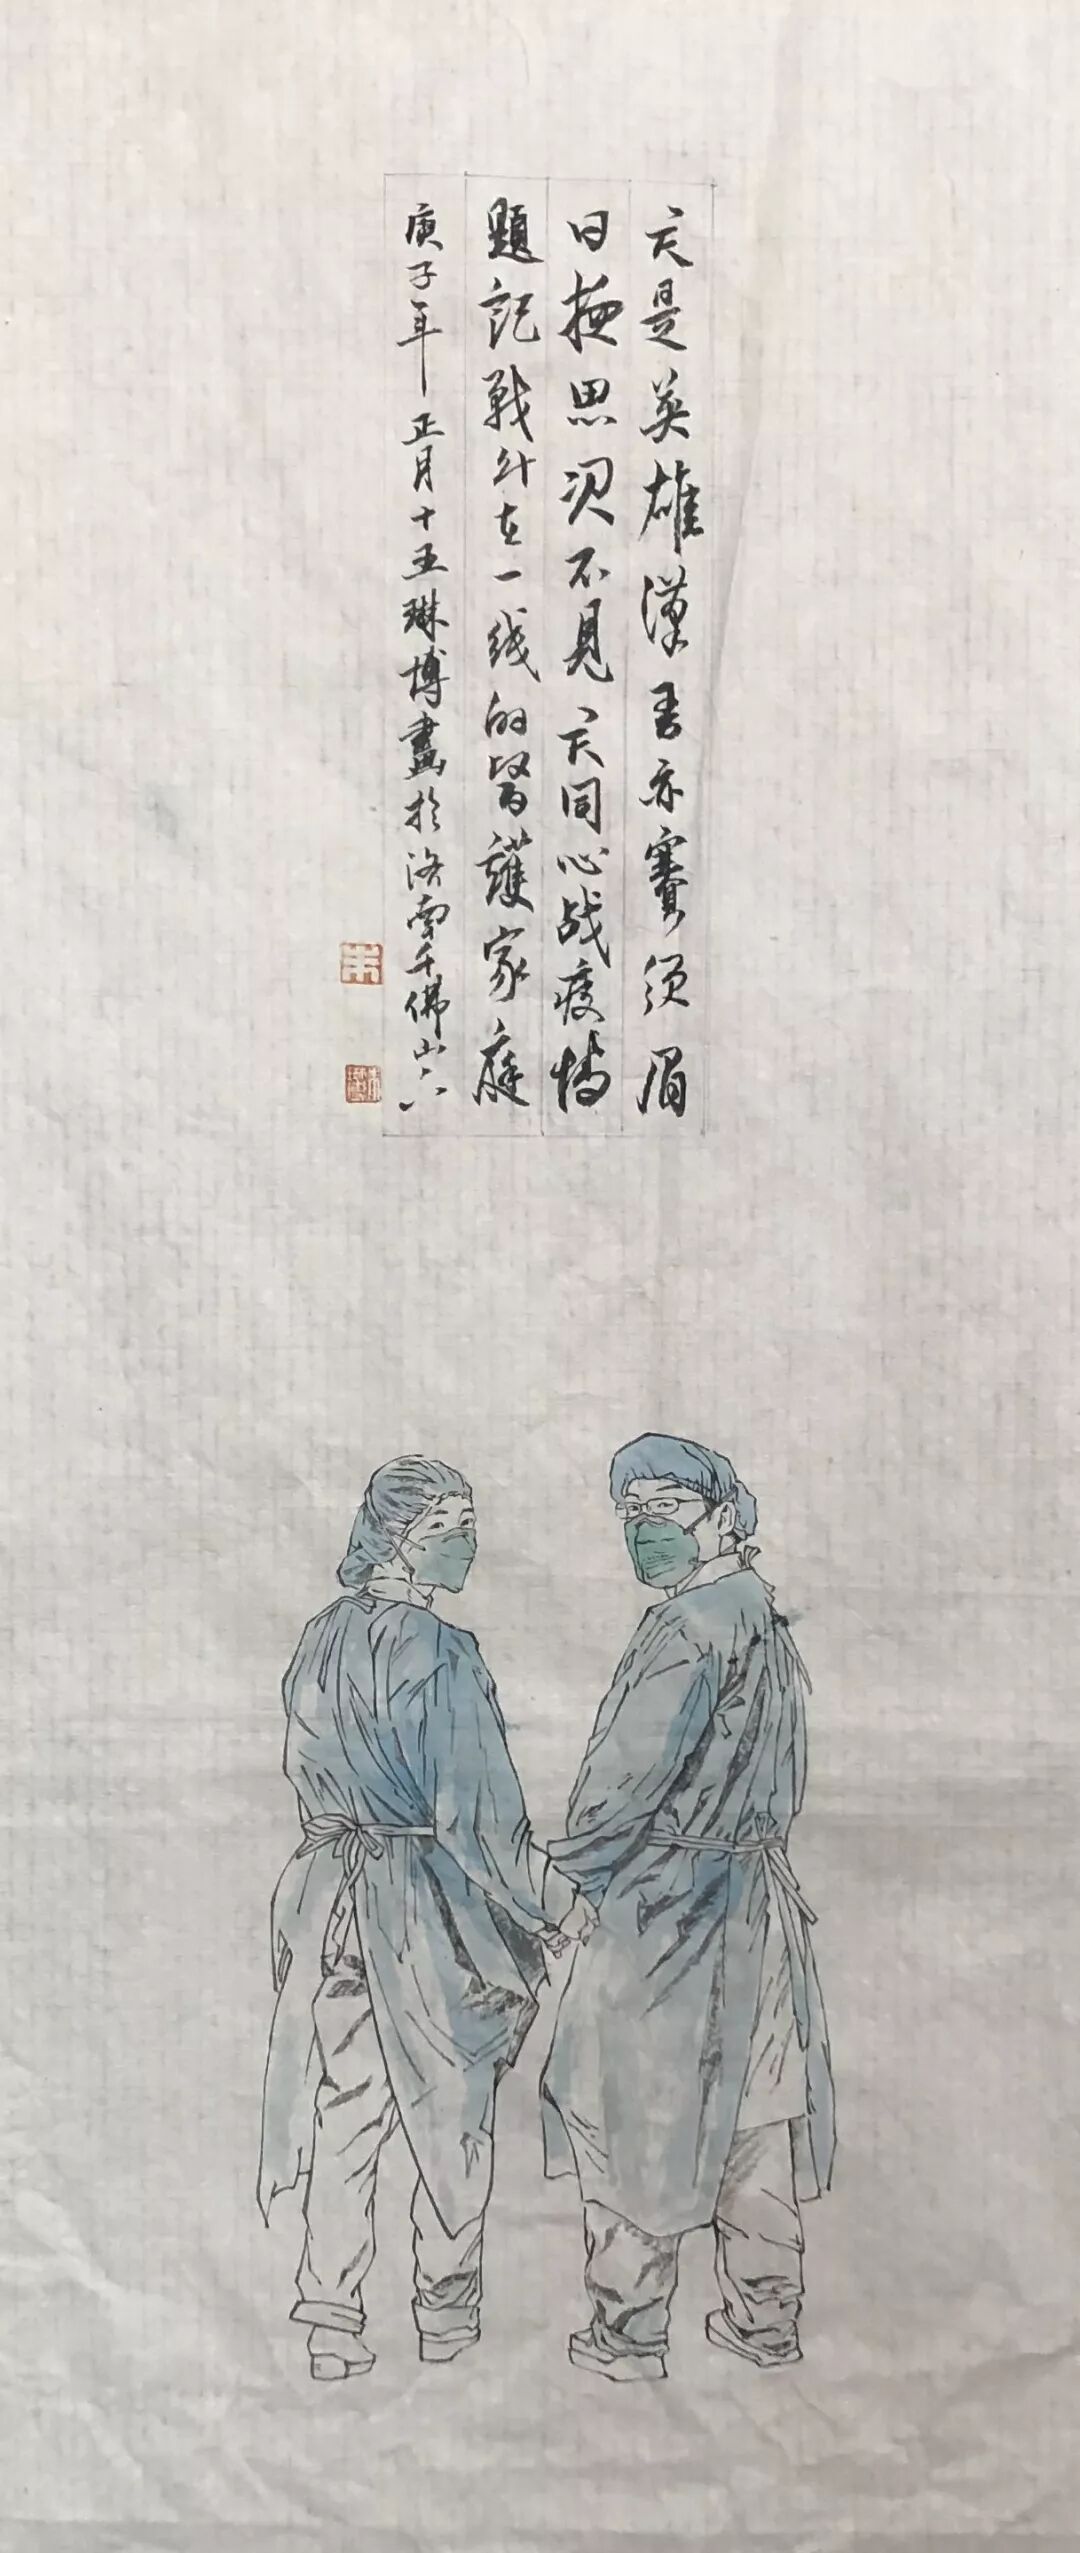 夫是英雄漢吾亦賽须眉
日掖思不見夫同心战疫情
題記戰斗在一线的醫護家庭
庚子年正月十五琳博畫於洛南千佛山下
朱